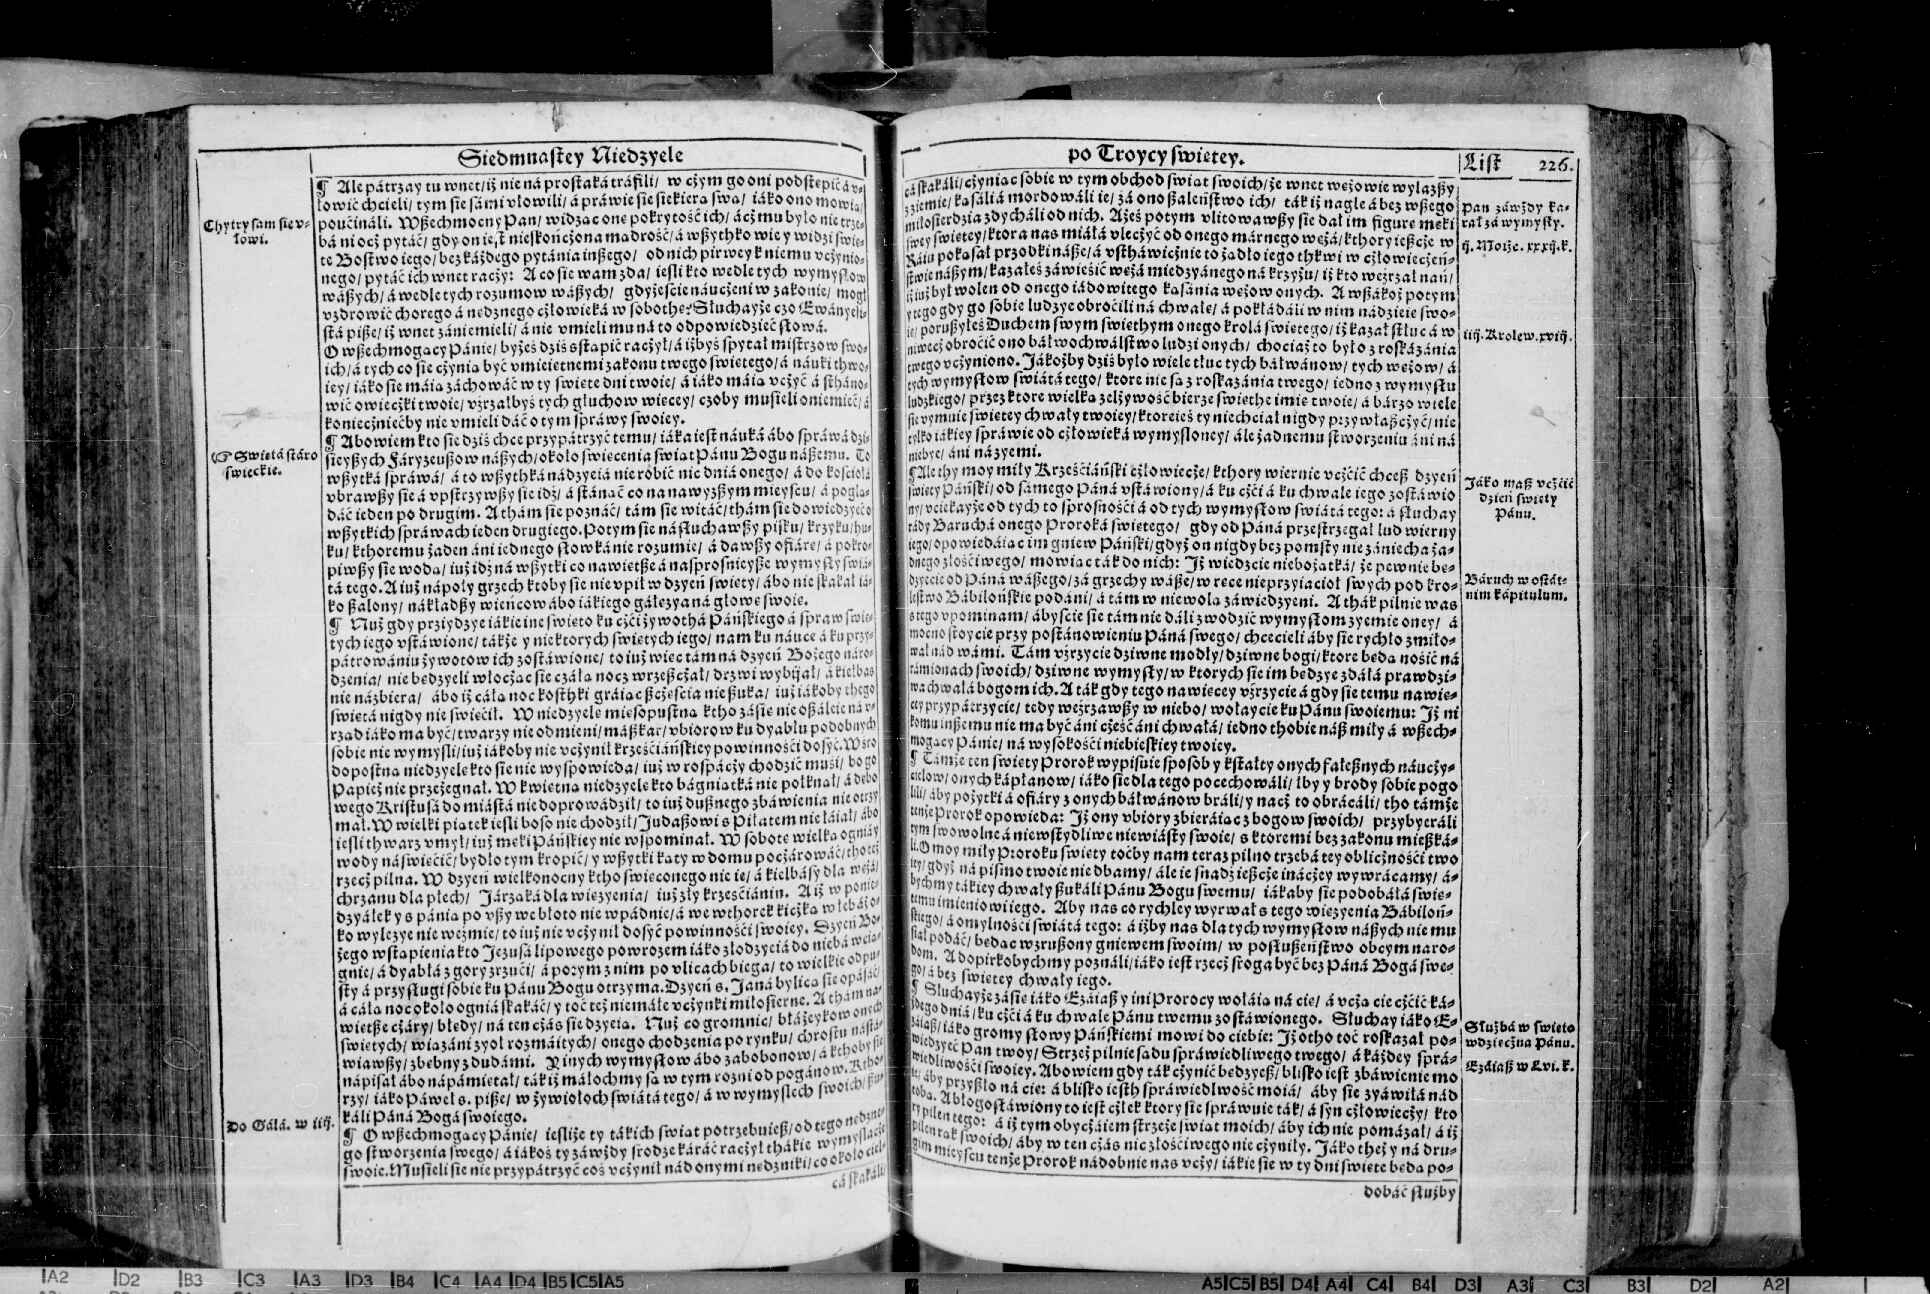 Siedmnastey Niedzyele
¶ Ale pátrzay tu wnet/ iż nie ná prostaká tráfili/ w czym go oni podstępić á v-
łowić chcieli/ tym sie sámi vłowili/ á práwie sie siekierá swą/ iáko ono mowią/
poućináli. Wszechmocny Pan/ widząc onę pokrytość ich/ acż mu było nie trze-
bá ni ocż pytáć/ gdy on iest nieskońcżona mądrość/ á wszythko wie y widzi świe-
te Bostwo iego/ bez káżdego pytánia inszego/ od nich pirwey k niemu vcżynio-
nego/ pytáć ich wnet racży: A co sie wam zda/ iesli kto wedle tych wymysłow
wászych/ á wedle tych rozumow wászych/ gdyżeście náucżeni w zakonie/ mogł
vzdrowić chorego á nędznego cżłowieká w sobothę? Słuchayże czo Ewányeli-
stá pisze/ iż wnet zániemieli/ á nie vmieli mu ná to odpowiedzieć słowá.
O wszechmogący Pánie/ byżeś dziś sstąpić racżył/ á iżbyś spytał mistrzow swo-
ich/ á tych co sie cżynią być vmieiętnemi zakonu twego świętego/ á náuki thwo-
iey/ iáko sie máią záchowáć w ty święte dni twoie/ á iáko máią vcżyć á stháno-
wić owiecżki twoie/ vźrzałbyś tych głuchow więcey/ czoby musieli oniemieć/ á
koniecżniećby nie vmieli dáć o tym spráwy swoiey.
¶ Abowiem kto sie dziś chce przypátrzyć temu/ iáka iest náuká ábo spráwá dzi-
sieyszych Fáryzeuszow nászych/ około święcenia świąt Pánu Bogu nászemu. To
wszytká spráwá/ á to wszythká nádzyeiá nie robić nic dniá onego/ á do kościołá
vbrawszy sie á vpstrzywszy sie idź/ á stánąć co na nawyższym mieyscu/ á poglą-
dáć ieden po drugim. A thám sie poznáć/ tám sie witáć/ thám sie dowiedzyeć o
wszytkich spráwách ieden drugiego. Potym sie násłuchawszy pisku/ krzyku/ hu-
ku/ kthoremu żaden áni iednego słowká nie rozumie/ á dawszy ofiárę/ á pokro-
piwszy sie wodą/ iuż idź ná wszytki co nawiętsze á nasprosnieysze wymysły świá-
tá tego. A iuż nápoły grzech ktoby sie nie vpił w dzyeń święty/ ábo nie skakał iá-
ko szalony/ nákładszy wieńcow ábo iákiego gáłęzya ná głowę swoię.
¶ Nuż gdy przyidzye iákie ine święto ku cżći żywothá Páńskiego á spraw świę-
tych iego vstáwione/ tákże y niektorych świętych iego/ nam ku náuce á ku przy-
pátrowániu żywotow ich zostáwione/ to iuż więc tám ná dzyeń Bożego náro-
dzenia/ nie będzyeli włocżąc sie cżáłą nocz wrzeszcżał/ drzwi wybijał/ á kiełbas
nie názbiera/ ábo iż cáłą noc kosthki gráiąc szcżęścia nie szuka/ iuż iákoby thego
świętá nigdy nie święcił. W niedzyelę mięsopustną ktho zásię nie oszáleie ná v-
rząd iáko ma być/ twarzy nie odmieni/ mászkar/ vbiorow ku dyabłu podobnych
sobie nie wymysli/ iuż iákoby nie vcżynił krześciáńskiey powinności dosyć. W śro-
dopostną niedzyelę kto sie nie wyspowieda/ iuż w rospácży chodzić musi/ bo go
Papież nie przeżegnał. W kwietną niedzyelę kto bágniątká nie połknął/ á dębo-
wego Kristusá do miástá nie doprowádził/ to iuż dusznego zbáwienia nie otrzy-
mał. W wielki piątek iesli boso nie chodził/ Judaszowi s Piłatem nie łáiał/ ábo
iesli thwarz vmył/ iuż męki Páńskiey nie wspominał. W sobotę wielką ogniá y
wody náświęcić/ bydło tym kropić/ y wszytki kąty w domu pocżárowáć/ tho też
rzecż pilna. W dzyeń wielkonocny ktho święconego nie ie/ á kiełbásy dla wężá/
chrzanu dla płech/ Járząbká dla więzyenia/ iuż zły krześcianin. A iż w ponie-
dzyałek y s pánią po vszy we błoto nie wpádnie/ á we wthorek kiężká w łeb á iá-
ko wylezye nie weźmie/ to iuż nie vcżynił dosyć powinności swoiey. Dzyeń Bo-
żego wstąpienia kto Jezusá lipowego powrozem iáko złodzyeiá do niebá wcią-
gnie/ á dyabłá z gory zrzuci/ á potym z nim po vlicach biega/ to wielkie odpu-
sty á przysługi sobie ku Pánu Bogu otrzyma. Dzyeń s. Janá bylicą sie opásáć/
á cáłą noc około ogniá skakáć/ y toć też niemáłe vcżynki miłosierne. A thám na-
więtsze cżáry/ błędy/ ná ten cżás sie dzyeią. Nuż co gromnic/ błażeykow onych
świętych/ wiązáni zyoł rozmáitych/ onego chodzenia po rynku/ chrostu nástá-
wiawszy/ z bębny z dudámi. Y inych wymysłow ábo zabobonow/ á kthoby sie
nápisał ábo nápámiętał/ ták iż máłochmy są w tym rozni od pogánow. Ktho-
rzy/ iáko Páweł s. pisze/ w żywiołoch świátá tego/ á w wymyslech swoich/ szu-
káli Páná Bogá swoiego.
¶ O wszechmogący Pánie/ iesliże ty tákich świąt potrzebuiesz/ od tego nędzne-
go stworzenia swego/ á iákoś ty záwżdy srodze káráć racżył thákie wymyslácże
swoie. Musieli sie nie przypátrzyć coś vcżynił nád onymi nędzniki/ co około ciel-
cá skakáli/
Chytry sam sie v-
łowi.
☞ Swiętá stáro
świeckie.
Do Gálá. w iiij.
po Troycy świętey.
List 226.
cá skakáli/ cżyniąc sobie w tym obchod świąt swoich/ że wnet wężowie wylazszy
z ziemie/ kąsáli á mordowáli ie/ zá ono szaleństwo ich/ ták iż nagle á bez wszego
miłosierdzia zdycháli od nich. Ażeś potym vlitowawszy sie dał im figurę męki
swey świętey/ ktora nas miáłá vlecżyć od onego márnego wężá/ kthory ieszcże w
Ráiu pokąsał przodki násze/ á vstháwicżnie to żądło iego thkwi w cżłowiecżeń-
stwie nászym/ kazałeś záwiesić wężá miedzyánego ná krzyżu/ iż kto weźrzał nań/
iż iuż był wolen od onego iádowitego kąsánia wężow onych. A wszákoż potym
y tego gdy go sobie ludzye obrocili ná chwałę/ á pokładáli w nim nádzieię swo-
ię/ poruszyłeś Duchem swym świethym onego krolá świętego/ iż kazał stłuc á w
niwecż obrocić ono báłwochwálstwo ludzi onych/ chociaż to było z roskazánia
twego vcżyniono. Jákożby dziś było wiele tłuc tych báłwánow/ tych wężow/ á
tych wymysłow świátá tego/ ktore nie są z roskazánia twego/ iedno z wymysłu
ludzkiego/ przez ktore wielką zelżywość bierze świethe imię twoie/ á bárzo wiele
sie vymuie świętey chwały twoiey/ ktoreieś ty niechciał nigdy przywłaszcżyć/ nie
tylko iákiey spráwie od cżłowieká wymysloney/ ále żadnemu stworzeniu áni ná
niebye/ áni ná zyemi.
¶ Ale thy moy miły Krześciáński cżłowiecże/ kthory wiernie vcżcić chcesz dzyeń
święty Páński/ od sámego Páná vstáwiony/ á ku cżći á ku chwale iego zostáwio-
ny/ vciekayże od tych to sprosności á od tych wymysłow świátá tego: á słuchay
rády Báruchá onego Proroká świętego/ gdy od Páná przestrzegał lud wierny
iego/ opowiedáiąc im gniew Páński/ gdyż on nigdy bez pomsty nie zániecha żá-
dnego złościwego/ mowiąc ták do nich: Iż wiedzcie niebożątká/ że pewnie bę-
dzyecie od Páná wászego/ zá grzechy wásze/ w ręce nieprzyiacioł swych pod kro-
lestwo Bábilońskie podáni/ á tám w niewolą záwiedzyeni. A thák pilnie was
s tego vpominam/ ábyście sie tám nie dáli zwodzić wymysłom zyemie oney/ á
mocno stoycie przy postánowieniu Páná swego/ chcecieli áby sie rychło zmiło-
wał nád wámi. Tám vźrzycie dziwne modły/ dziwne bogi/ ktore będą nosić ná
rámionach swoich/ dziwne wymysły/ w ktorych sie im będzye zdáłá prawdzi-
wa chwałá bogom ich. A ták gdy tego nawięcey vźrzycie á gdy sie temu nawię-
cey przypátrzycie/ tedy weźrzawszy w niebo/ wołaycie ku Pánu swoiemu: Iż ni
komu inszemu nie ma być áni cżeść áni chwałá/ iedno thobie nasz miły á wszech-
mogący Pánie/ ná wysokości niebieskiey twoiey.
¶ Támże ten święty Prorok wypisuie sposoby kstałty onych fałesznych náucży-
cielow/ onych kápłanow/ iáko sie dla tego pocechowáli/ łby y brody sobie pogo
lili/ áby pożytki á ofiáry z onych báłwánow bráli/ y nacż to obrácáli/ tho támże
tenże Prorok opowieda: Iż ony vbiory zbieráiąc z bogow swoich/ przybyeráli
tym swowolne á niewstydliwe niewiásty swoie/ s ktoremi bez zakonu mieszká-
li. O moy miły Proroku święty toćby nam teraz pilno trzebá tey oblicżności two
iey/ gdyż ná pismo twoie nie dbamy/ ále ie snadź ieszcże inácżey wywrácamy/ á-
bychmy tákiey chwały szukáli Pánu Bogu swemu/ iákaby sie podobáłá świę-
temu imieniowi iego. Aby nas co rychley wyrwał s tego więzyenia Bábiloń-
skiego/ á omylności świátá tego: á iżby nas dla tych wymysłow nászych nie mu
siał podáć/ będąc wzruszony gniewem swoim/ w posłuszeństwo obcym naro-
dom. A dopirkobychmy poználi/ iáko iest rzecż sroga być bez Páná Bogá swe-
go/ á bez świętey chwały iego.
¶ Słuchayże zásię iáko Ezáiasz y ini Prorocy wołáią ná cię/ á vcżą cię cżcić ká-
żdego dniá/ ku cżći á ku chwale Pánu twemu zostáwionego. Słuchay iáko E-
záiasz/ iáko gromy słowy Páńskiemi mowi do ciebie: Iż otho toć roskazał po-
wiedzyeć Pan twoy/ Strzeż pilnie sądu spráwiedliwego twego/ á káżdey sprá-
wiedliwości swoiey. Abowiem gdy ták cżynić będzyesz/ blisko iest zbáwienie mo
ie/ áby przyszło ná cię: á blisko iesth spráwiedliwość moiá/ áby sie zyáwiłá nád
tobą. A błogosłáwiony to iest cżłek ktory sie spráwuie ták/ á syn cżłowiecży/ kto
ry pilen tego: á iż tym obycżáiem strzeże świąt moich/ áby ich nie pomázał/ á iż
pilen rąk swoich/ áby w ten cżás nic złościwego nie cżyniły. Jáko theż y ná dru-
gim mieyscu tenże Prorok nadobnie nas vcży/ iákie sie w ty dni święte będą po-
dobáć służby
Pan záwżdy ká-
rał zá wymysły.
ij. Moiż. xxxij. k.
iiij. Krolew. xviij.
Jáko masz vcżcić
dzień święty
Pánu.
Báruch w ostát-
nim kápitulum.
Służbá w święto
wdzięcżna Pánu.
Ezáiasz w Lvi. k.
A2 D2 B3 C3 A3 D3 B4 C4 A4 D4 B5 C5 A5
A5 C5 B5 D4 A4 C4 B4 D3 A3 C3 B3 D2 A2